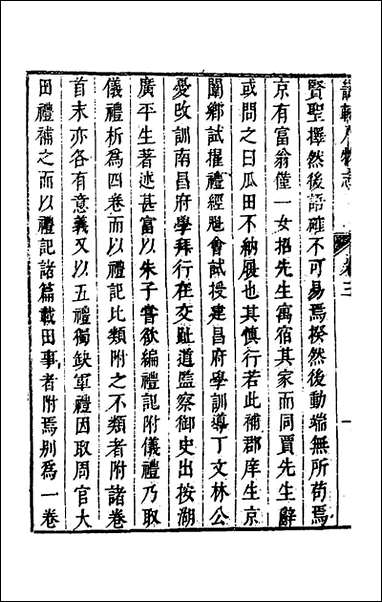 賢聖擇然後語確不可易焉揆然後動端無所苟焉
京有富翁僅一女招先生寓宿其家而同賈先生辭
或問之曰瓜田不納履也其慎行若此補郡庠生京
闈鄉試擢禮經魁會試授建昌府學訓導丁文林公
憂改訓南昌府學拜行在交趾道監察御史出按湖
廣平生著述甚富以朱子嘗欲編禮記附儀禮乃取
儀禮析為四卷而以禮記比類附之不類者附諸卷
首末亦各有意義又以五禮獨缺軍禮因取周官大
田禮補之而以禮記諸篇載田事者附焉別為一卷